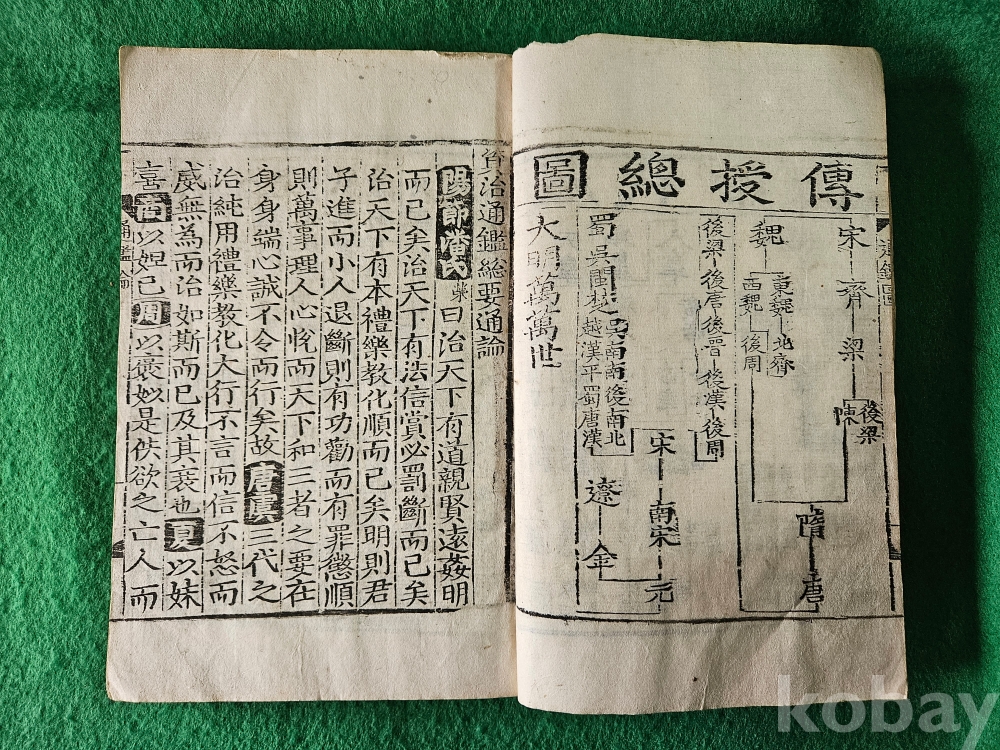 傳授總圖
宋 齊 梁 後梁
陳
魏 東魏 北齊
西魏 後周
隋 唐
後梁 後唐 後晋 後漢 後周
宋 南宋 元
蜀 吳 閩 楚 吳越 南漢 南平 後蜀 南唐 北漢
遼 金
大明萬萬世
資治通鑑総要通論
陽節潘氏榮曰治天下有道親賢遠姦明
而已矣治天下有法信賞必罰斷而已矣
治天下有本禮樂教化順而已矣明則君
子進而小人退斷則有功勸而有罪懲順
則萬事理人心恱而天下和三者之要在
身身端心誠不令而行矣故唐虞三代之
治純用禮樂教化大行不言而信不怒而
威無為而治如斯而已及其衰也夏以妹
喜商以妲己周以褒姒是佚欲之亡人而
kobay